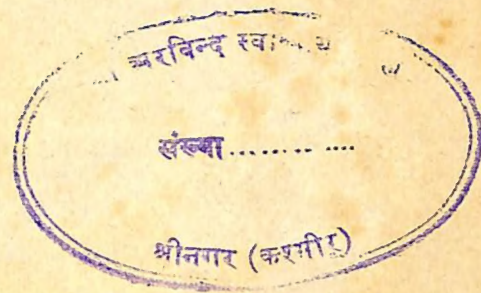 अरविन्द
संख्या ........ ....
श्रीनगर (कश्मीर)